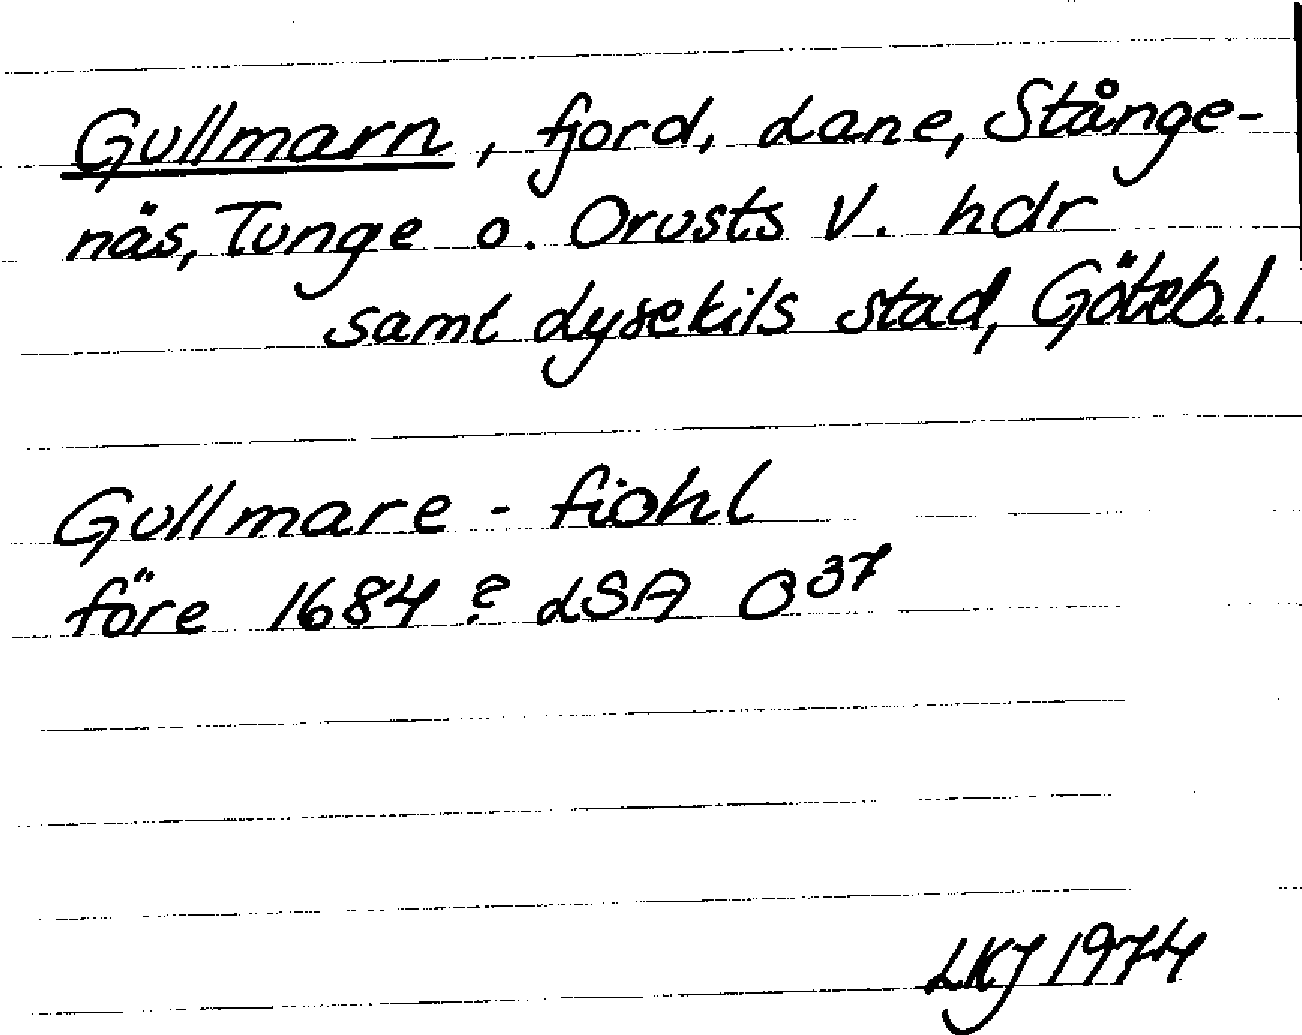 Gullmarn, fjord, Lane, Stånge-
näs, Tunge o. Orusts V. hdr
samt Lysekils stad, Göteb.l.
Gullmare - fiohl
före 1684? LSA O 37
LKJ 1974